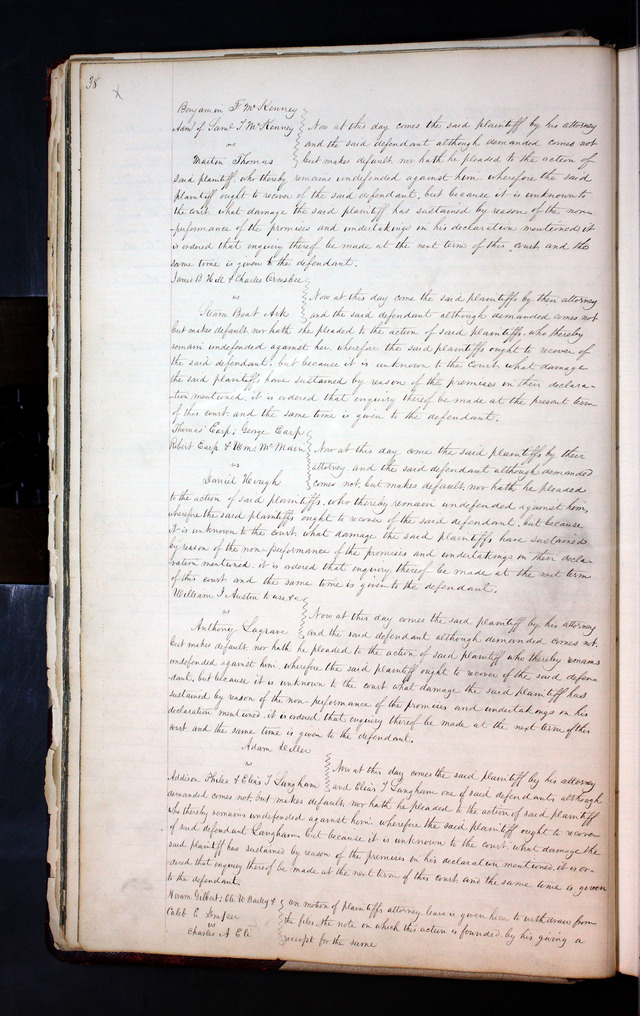 38
x
Benjamin F McKenney
Adm^r of Sam^l T McKenney
vs
Martin Thomas
Now at this day comes the said plaintiff by his attorney
and the said defendant although demanded comes not
but makes default, nor hath he pleaded to the action of
said plaintiff, who thereby remains undefended against him wherefore the said
plaintiff ought to recover of the said defendant, but because it is unknown to
the court what damage the said plaintiff has sustained by reason of the non-
-performance of the promises and undertakings in his declaration mentioned it
is ordered that enquiry thereof be made at the next term of this court and the
same time is given to the defendant.
James B Hill & Charles Ormsbee
vs
Steam Boat Ark
Now at this day come the said plaintiffs by their attorney
and the said defendant although demanded comes not
but makes default, nor hath she pleaded to the action of said plaintiffs, who thereby
remain undefended against her, wherefore the said plaintiffs ought to recover of
the said defendant, but because it is unknown to the court what damage
the said plaintiffs have sustained by reason of the premises in their declara-
-tion mentioned, it is ordered that enquiry thereof be made at the present term
of this court and the same time is given to the defendant.
Thomas Earp, George Earp
Robert Earp & Wm. McMain
vs
Daniel Hough
Now at this day come the said plaintiffs by their
attorney and the said defendant although demanded
comes not, but makes default, nor hath he pleaded
to the action of said plaintiffs, who thereby remain undefended against him,
wherefore the said plaintiffs ought to recover of the said defendant, but because
it is unknown to the court, what damage the said plaintiffs have sustained
by reason of the non-performance of the promises and undertakings in their decla-
-ration mentioned, it is ordered that enquiry thereof be made at the next term
of this court and the same time is given to the defendant.
William J Austin to use &c
vs
Anthony
Now at this day comes the said plaintiff by his attorney
and the said defendant although demanded comes not,
but makes default, nor hath he pleaded to the action of said plaintiff who thereby remains
undefended against him, wherefore the said plaintiff ought to recover of the said defen-
-dant, but because it is unknown to the court what damage the said plaintiff has
sustained by reason of the non-performance of the promises and undertakings in his
declaration mentioned, it is ordered that enquiry thereof be made at the next term of this
court and the same time is given to the defendant.
Adam Deller
vs
Addison Philes & Elias T Langham
Now at this day comes the said plaintiff by his attorney
and Elias T Langham one of said defendants although
demanded comes not, but makes default, nor hath he pleaded to the action of said plaintiff
who thereby remains undefended against him wherefore the said plaintiff ought to recover
of said defendant Langham, but because it is unknown to the court, what damage the
said plaintiff has sustained by reason of the premises in his declaration mentioned, it is or-
-dered that enquiry thereof be made at the next term of this court and the same time is given
to the defendant.
Hiram Gilbert, Eli W Bailey &
Caleb E
vs
Charles A Ele
on motion of plaintiffs attorney leave is given him to withdraw from
the files, the note on which this action is founded, by his giving a
receipt for the same